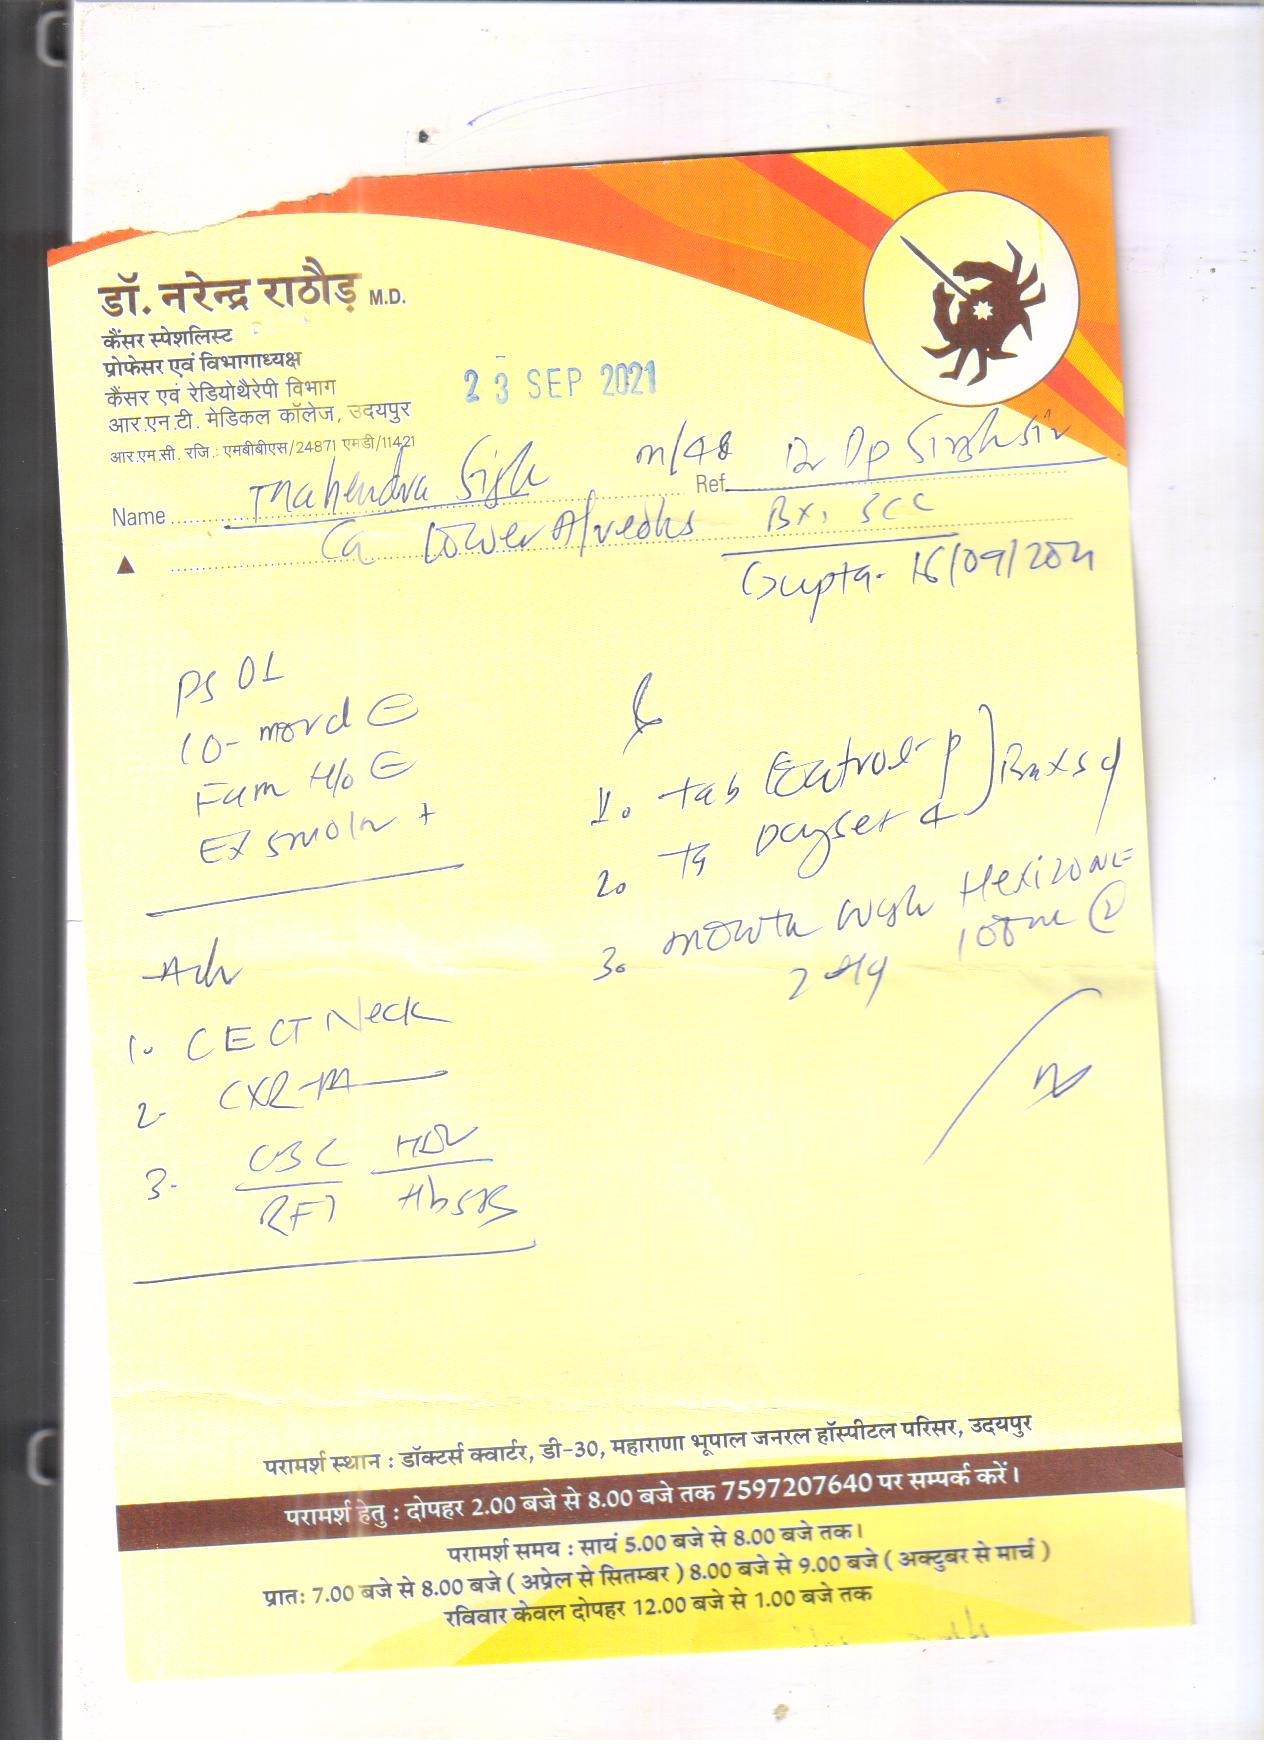 डॉ. नरेन्द्र राठौड़ M.D.
कैंसर स्पेशलिस्ट
प्रोफेसर एवं विभागाध्यक्ष
कैंसर एवं रेडियोथैरेपी विभाग
आर.एन.टी. मेडिकल कॉलेज, उदयपुर
आर.एम.सी. रजि.: एमबीबीएस/24871 एमडी/11421
23 SEP 2021
Name Mahendra Singh m/48 Ref. Dr Dp Singh Sir
Ca Lower Alveolus Bx, SCC
Gupta- 16/09/2021
PS 01
CO-mord
Fam H/o
EX smoker +
Adv
1. CECT Neck
2. CXR-PA
3. CBC HIV
RFT HbsAg
1. tab P
2. Tb
3. mouth wash Hexizone
100ml
परामर्श स्थान : डॉक्टर्स क्वार्टर, डी-30, महाराणा भूपाल जनरल हॉस्पीटल परिसर, उदयपुर
परामर्श हेतु : दोपहर 2.00 बजे से 8.00 बजे तक 7597207640 पर सम्पर्क करें।
परामर्श समय : सायं 5.00 बजे से 8.00 बजे तक।
प्रातः 7.00 बजे से 8.00 बजे ( अप्रेल से सितम्बर ) 8.00 बजे से 9.00 बजे ( अक्टुबर से मार्च )
रविवार केवल दोपहर 12.00 बजे से 1.00 बजे तक